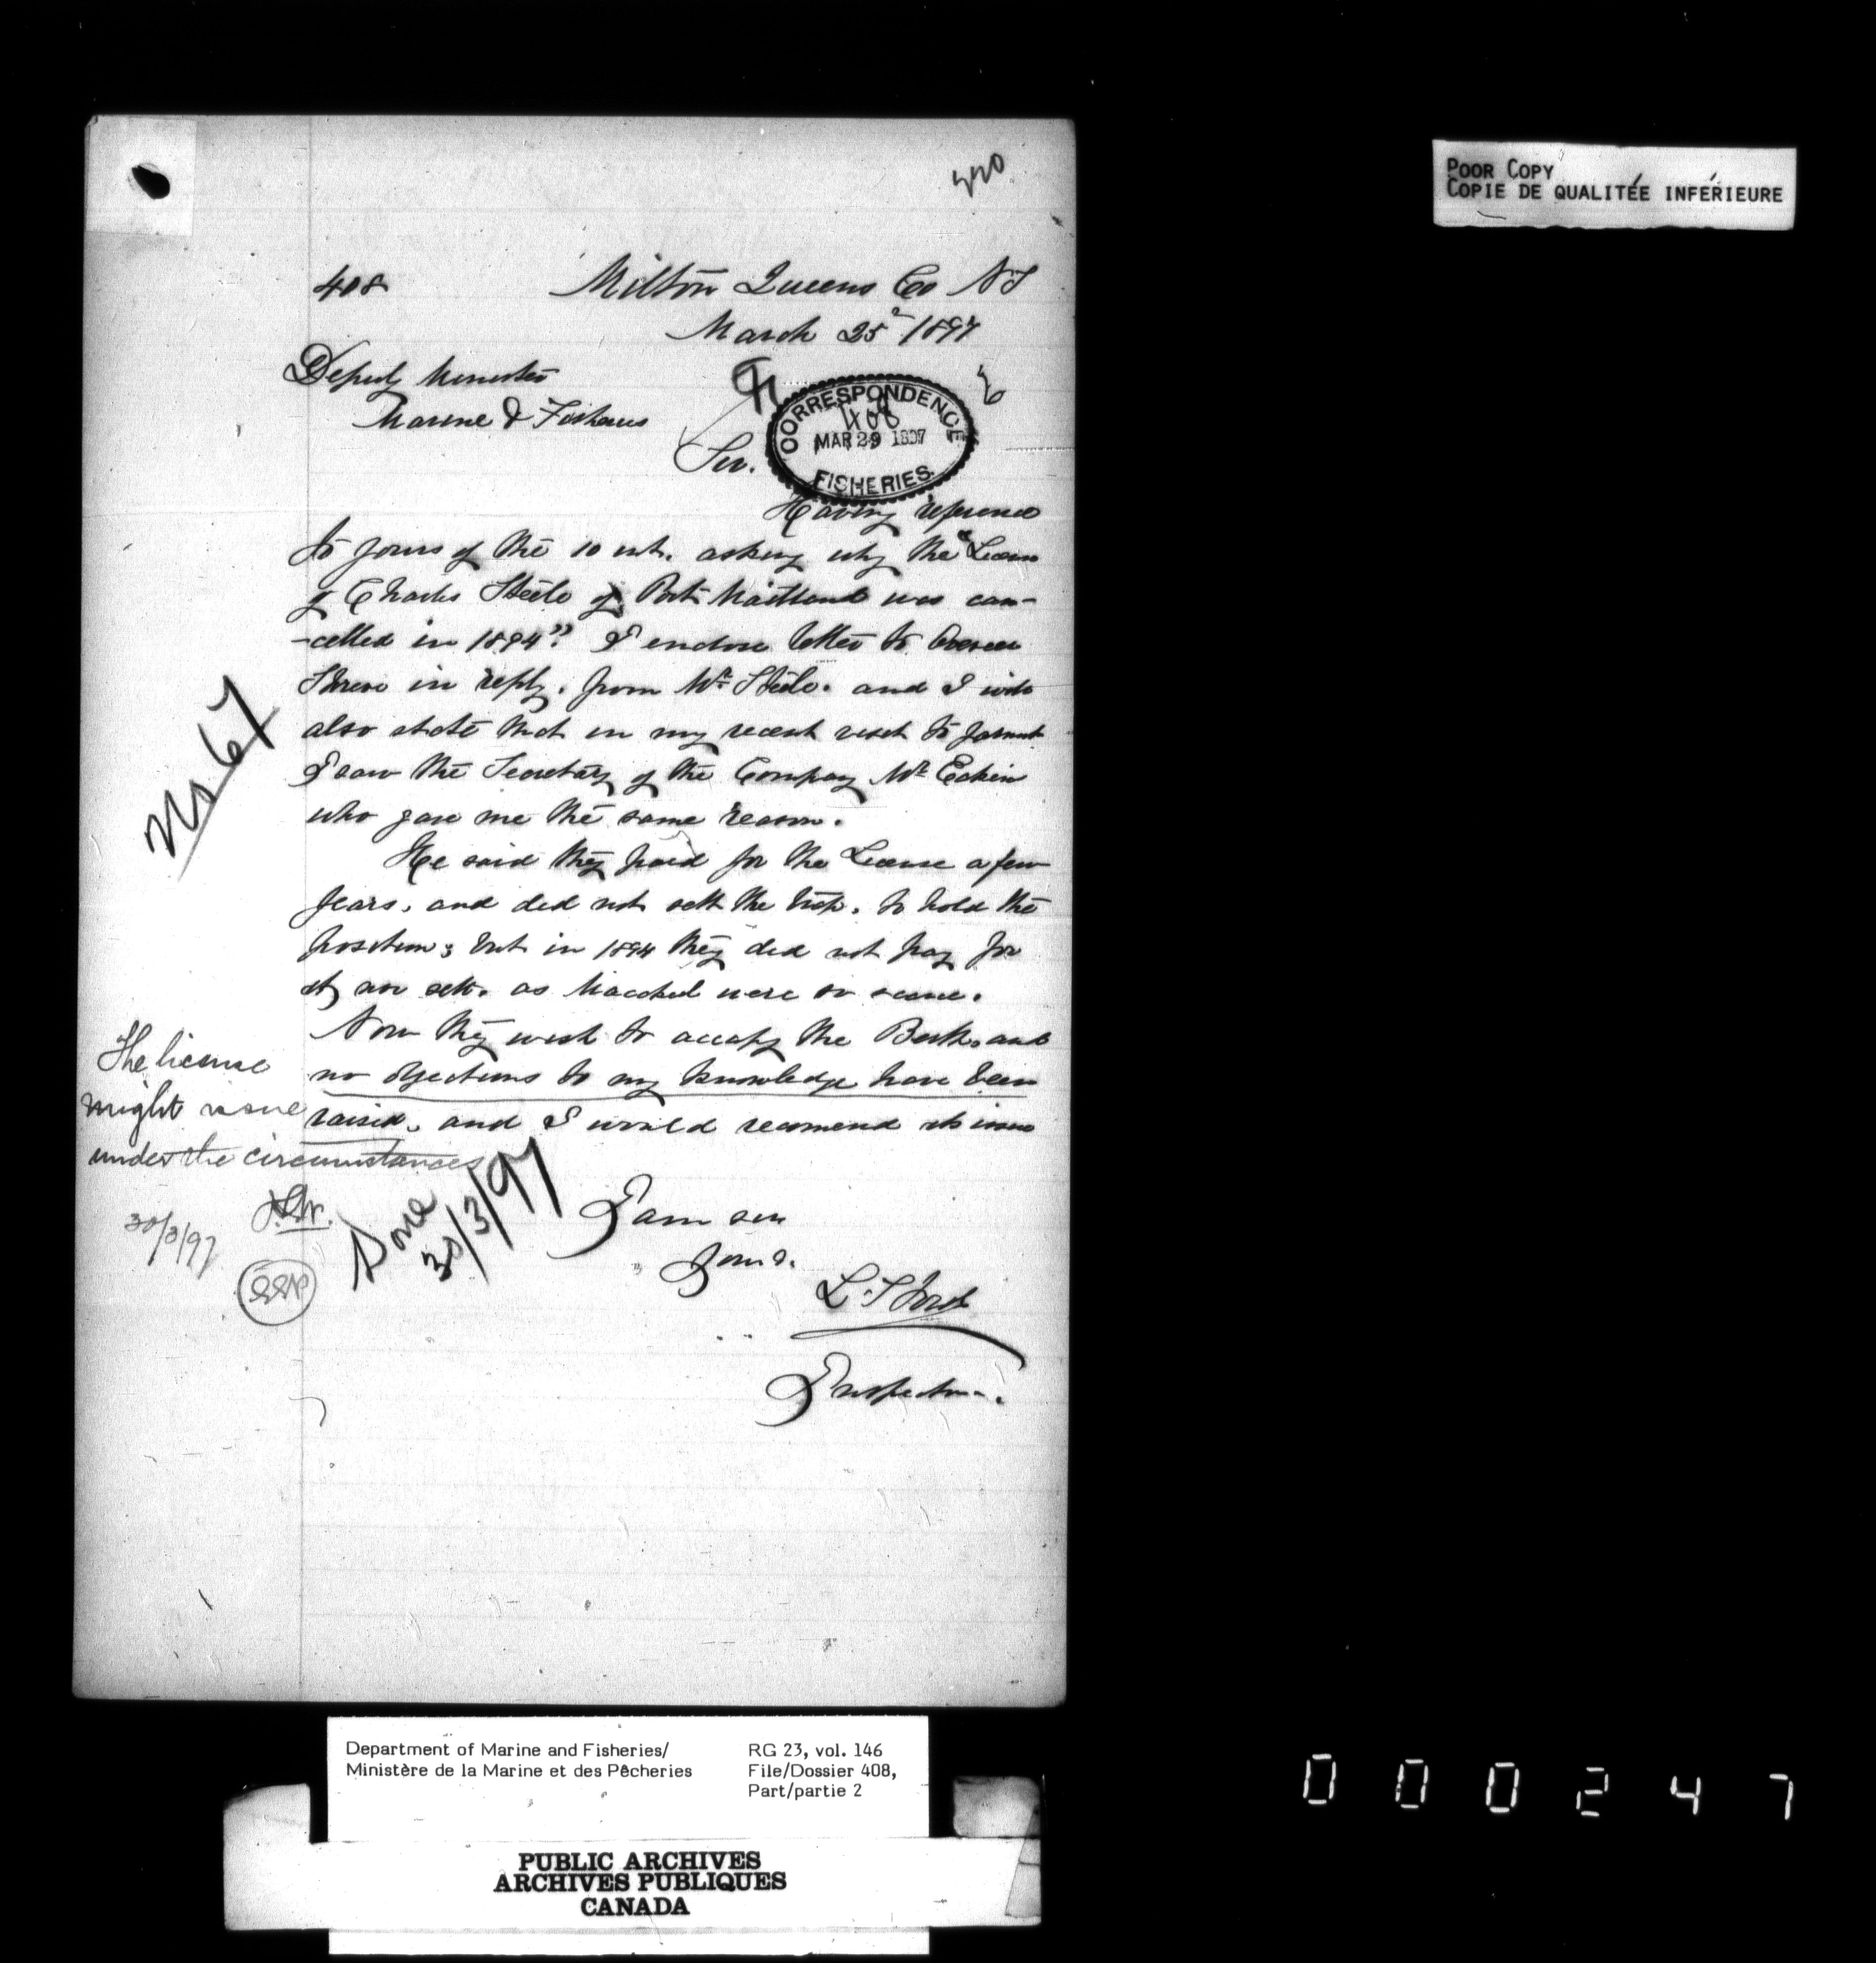 POOR COPY
COPIE DE QUALITÉE INFÉRIEURE
220
408 Milton Queens Co N S
March 25 1897
Deputy Minister
Marine & Fisheries
CORRESPONDENCE
408
MAR 29 1897
FISHERIES.
Sir.
Having reference
to yours of the 10 inst. asking why the "License
of Charles Steele of Port Maitland was can-
-celled in 1894"? I enclose letter to Overseer
in reply. from Mr Steele. and I will
also state that in my recent visit to Yarmouth
I saw the Secretary of the Company Mr Eakin
who gave me the same reason.
He said they paid for the License a few
years, and did not sett the trap. to hold the
position; but in 1894 they did not pay for
it, nor sett. as Mackerel were so scarce.
Now they wish to occupy the Berth. and
no objections to my knowledge have been
raised, and I would recomend its issue
No 67
The license
might issue
under the circumstances
30/3/97
Done
30/3/97
I am sir
Yours.
L. S Ford
Inspector.
Department of Marine and Fisheries/
Ministère de la Marine et des Pêcheries
RG 23, vol. 146
File/Dossier 408,
Part/partie 2
PUBLIC ARCHIVES
ARCHIVES PUBLIQUES
CANADA
000247